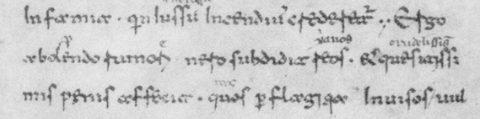 Infamia · quin Iussū Incendiū crederet᷑ · Ergo
abolendo rumori nero subdidit reos · & quesitissi
mis penis affecit · quos p flagitia Inuisos / uul